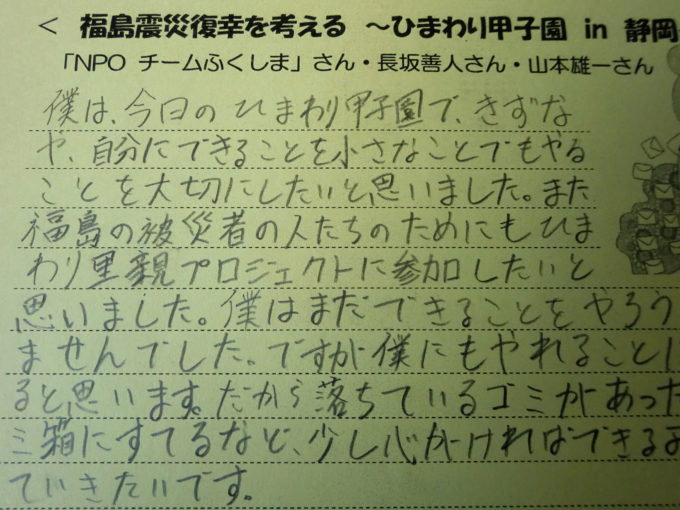 < 福島震災復幸を考える ～ひまわり甲子園 in 静岡
「NPO チームふくしま」さん・長坂善人さん・山本雄一さん
僕は、今日のひまわり甲子園で、きずな
や、自分にできることを小さなことでもやる
ことを大切にしたいと思いました。また
福島の被災者の人たちのためにもひま
わり里親プロジェクトに参加したいと
思いました。僕はまだできることをやろう
ませんでした。ですが僕にもやれること
ると思います。だから落ちているゴミがあった
ミ箱にすてるなど、少し心がければできる
ていきたいです。